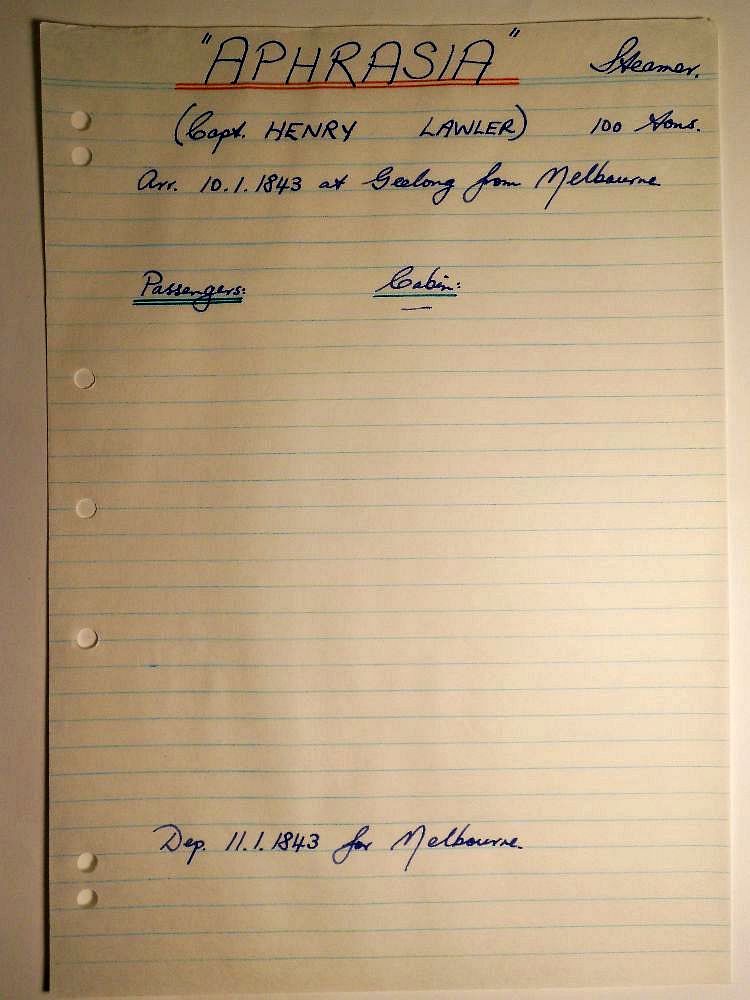 "APHRASIA" Steamer.
(Capt. HENRY LAWLER) 100 tons.
Arr. 10.1.1843 at Geelong from Melbourne
Passengers: Cabin:
—
Dep. 11.1.1843 for Melbourne.